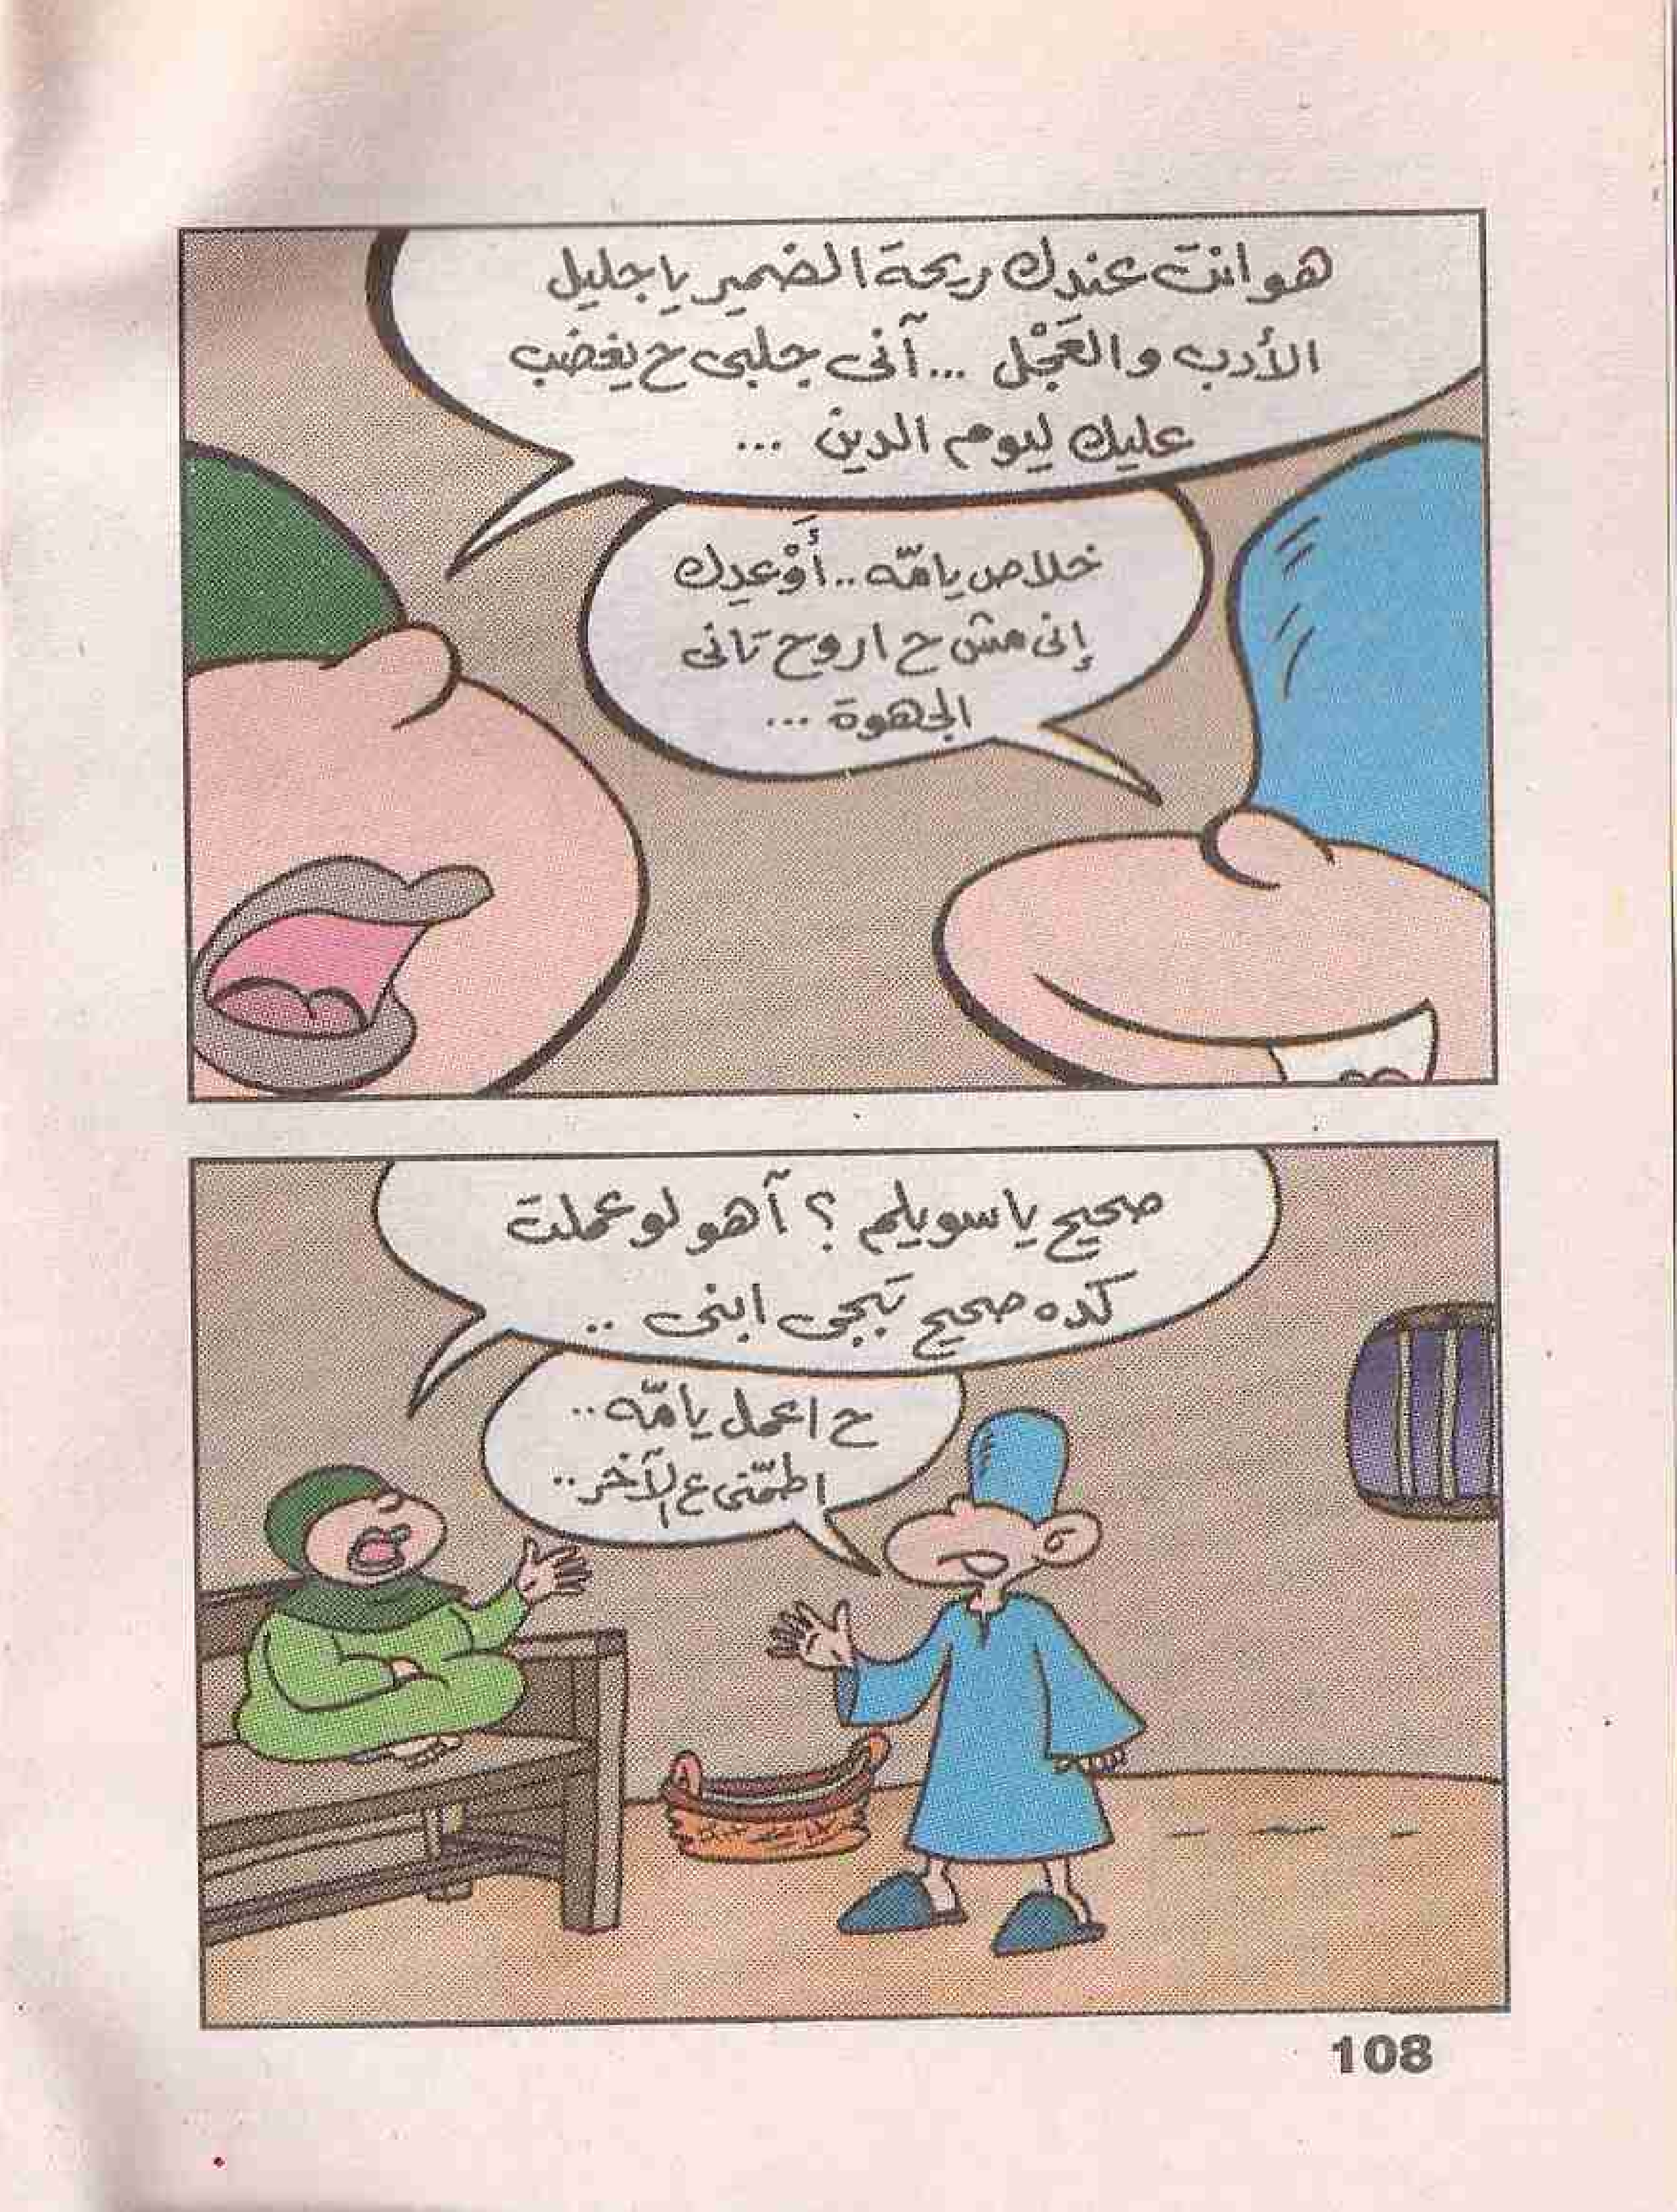 هو انت عندك ريحة الضمير يا جليل
الأدب والعَجْل ... آنى جلبى ح يغضب
عليك ليوم الدين ...
خلاص يامّه .. أَوْعدِك
إنى مش ح اروح تانى
الجهوة ...
صحيح يا سويلم ؟ آهو لو عملت
كده صحيح تَبجى ابنى ..
ح اعمل يامّه ..
اطمّنى ع الآخر ..
108